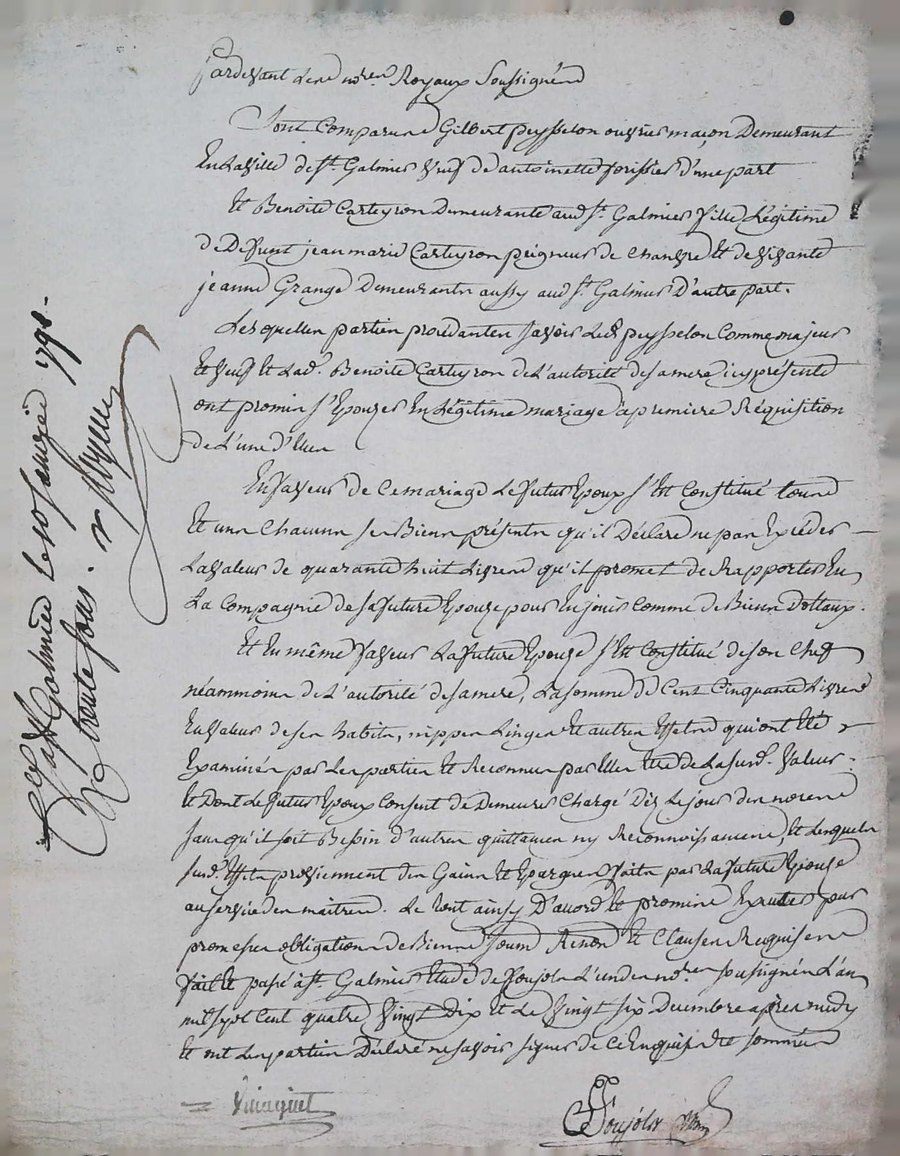 Pardevant Les no.res Royaux Soussignés
Sont Comparus Gilbert peysselon ouvrier maçon Demeurant
En La ville de St. Galmier Veuf de antoinette forissier d'une part
Et Benoite Carteyron Demeurante aud. St. Galmier fille Légitime
de Deffunt jean marie Carteyron peigneur de Chanvre Et de vivante
jeanne Grange Demeurante aussy aud. St. Galmier D'autre part.
Lesquelles parties procédantes savoir Led. peysselon Comme majeur
Et veuf Et Lad. Benoite Carteyron de L'autorité de sa mere icy présente
ont promis s'Epouzer En Légitime mariage a premiere Réquisition
de L'une d'Elles
En faveur de Ce mariage Le futur Epoux s'Est Constitué tous
Et uns Chacuns ses Biens présents qu'il Déclare ne pas Excéder
La valeur de quarante huit Livres qu'il promet de Rapporter En
La Compagnie de sa future Epouze pour En jouir Comme de Biens dottaux.
Et En même faveur La future Epouze s'Est Constitué de son Chef
néammoins de L'autorité de sa mere, La somme de Cent Cinquante Livres
En valeur de ses habits, nippes Linges Et autres Effets qui ont Eté
Examinés par Les parties Et Reconnus par Elles Etre de La susd. valeur.
Et Dont Le futur Epoux Consent de Demeurer Chargé Dès Le jour des noces
sans qu'il soit Besoin d'autres quittances ny Reconnoissances, Et Lesquels
susd. Effets proviennent des Gains Et Epargnes faits par La future Epouze
au service des maitres. Le tout ainsy D'accord Et promis Exécuter pour
promesses obligations de Biens soum. Renon. Et Clauses Requises
fait Et passé a St. Galmier Etude de Poujols L'un des no.res soussignés L'an
mil sept Cent quatre Vingt Dix Et Le Vingt six Decembre après midy
Et ont Les parties Déclaré ne savoir signer de Ce Enquises Et sommées
Poujols
St. Galmier Le 10 janvier 1791.
trente sous.